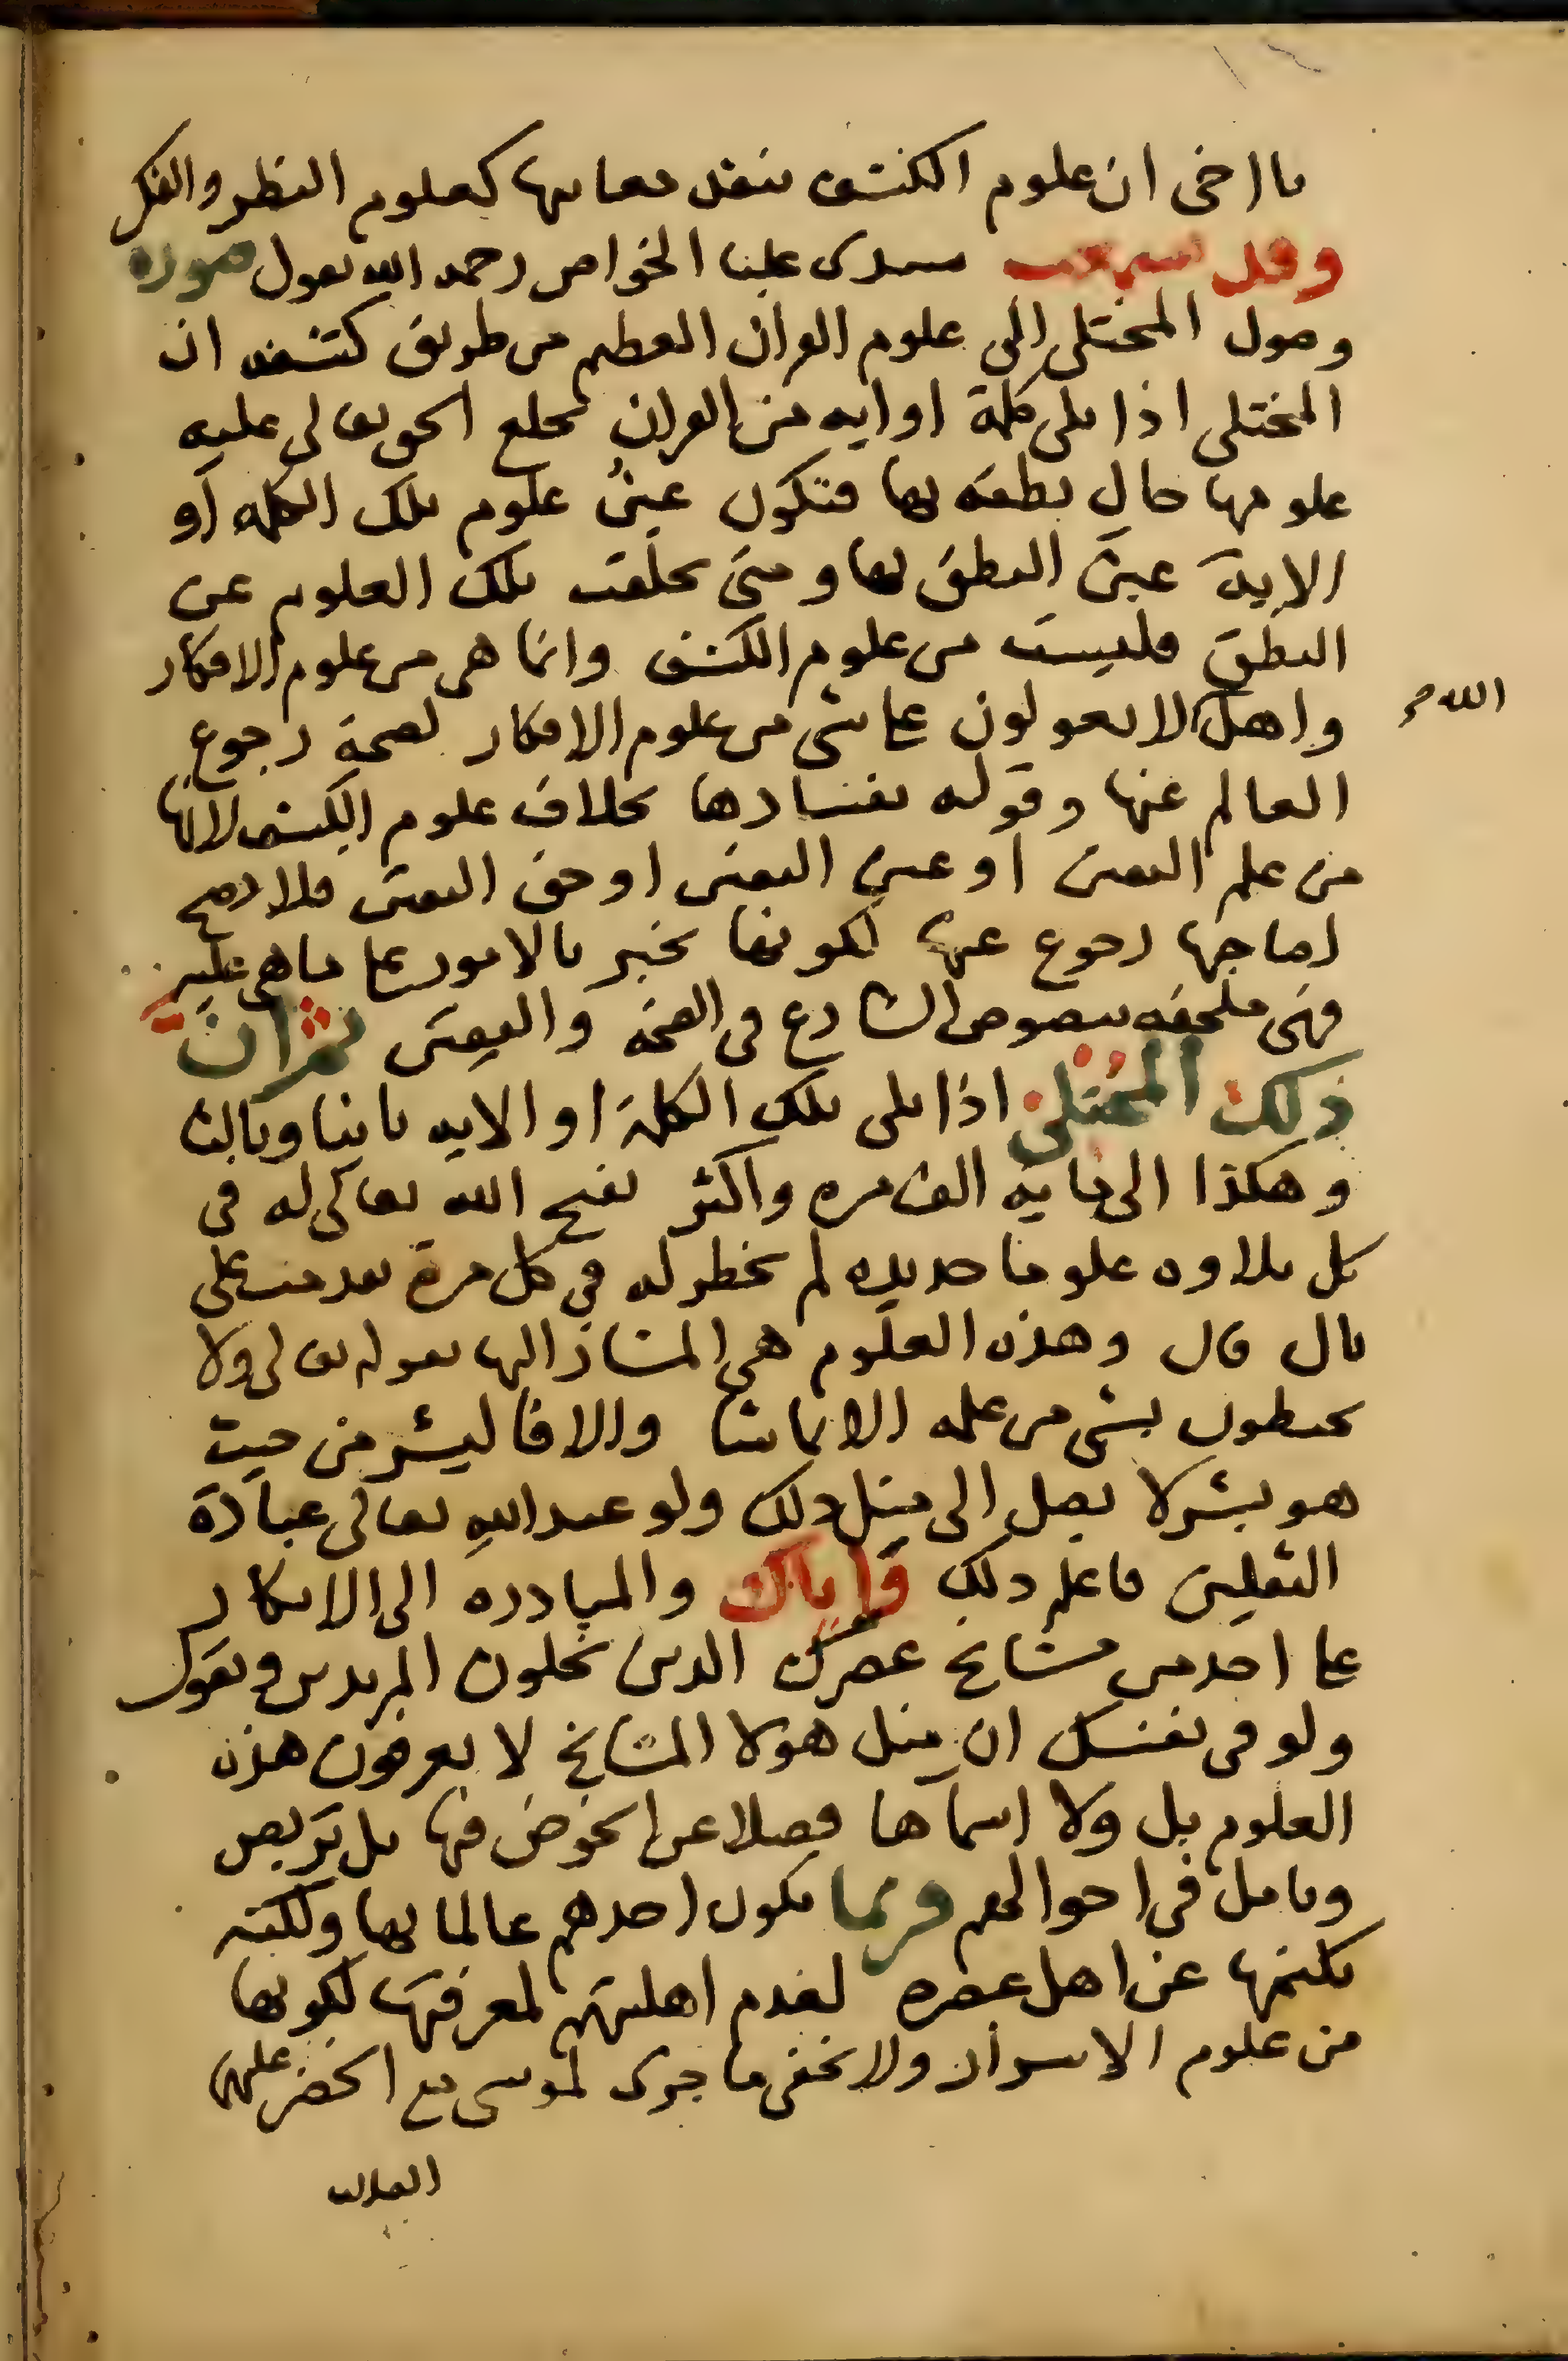 يا اخى ان علوم الكشف ينفد معانيها كعلوم النظر والفكر
وقد سمعت سيدى عليا الخواص رحمه الله يقول صورة
وصول المختلى الى علوم القران العظيم من طريق كشفه ان
المختلى اذا تلى كلمة او اية من القران يخلع الحق تعالى عليه
علومها حال نطقه بها فتكون عين علوم تلك الكلمة او
الاية عين النطق بها ومتى تخلفت تلك العلوم عن
النطق فليست من علوم الكشف وانما هى من علوم الافكار
واهل الله لا يعولون على شى من علوم الافكار لصحة رجوع
العالم عنها وقوله بفسادها بخلاف علوم الكشف لانها
من علم اليقين او عين اليقين او حق اليقين فلا يصح
لصاحبها رجوع عنها لكونها تخبر بالامور على ما هى عليه
فهى ملحقة بنصوص الشارع فى الصحة واليقين ثم ان
ذلك المختلى اذا تلى تلك الكلمة او الاية ثانيا وثالثا
وهكذا الى ماية الف مرة واكثر يفتح الله تعالى له فى
كل تلاوة علوما جديدة لم تخطر له فى كل مرة تقدمت على
بال قال وهذه العلوم هى المشار اليها بقوله تعالى ولا
يحيطون بشى من علمه الا بما شا والا فالبشر من حيث
هو بشر لا يصل الى مثل ذلك ولو عبد الله تعالى عبادة
الثقلين فاعلم ذلك واياك والمبادرة الى الانكار
على احد من مشايخ عصرك الذين يخلون المريدين وتقول
ولو فى نفسك ان مثل هولا المشايخ لا يعرفون هذه
العلوم بل ولا اسماها فضلا عن الخوض فيها بل تربص
وتامل فى احوالهم فربما يكون احدهم عالما بها ولكنه
يكتمها عن اهل عصره لعدم اهليتهم لمعرفتها لكونها
من علوم الاسرار ولا يخفى ما جرى لموسى مع الخضر عليهما
السلام